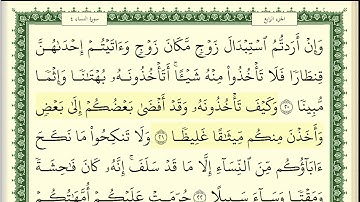 سورة النساء ٤ الجزء الرابع
وَإِنْ أَرَدتُّمُ ٱسْتِبْدَالَ زَوْجٍ مَّكَانَ زَوْجٍ وَءَاتَيْتُمْ إِحْدَىٰهُنَّ
قِنطَارًا فَلَا تَأْخُذُوا۟ مِنْهُ شَيْـًٔا ۚ أَتَأْخُذُونَهُۥ بُهْتَـٰنًا وَإِثْمًا
مُّبِينًا ٢٠ وَكَيْفَ تَأْخُذُونَهُۥ وَقَدْ أَفْضَىٰ بَعْضُكُمْ إِلَىٰ بَعْضٍ
وَأَخَذْنَ مِنكُم مِّيثَـٰقًا غَلِيظًا ٢١ وَلَا تَنكِحُوا۟ مَا نَكَحَ
ءَابَآؤُكُم مِّنَ ٱلنِّسَآءِ إِلَّا مَا قَدْ سَلَفَ ۚ إِنَّهُۥ كَانَ فَـٰحِشَةً
وَمَقْتًا وَسَآءَ سَبِيلًا ٢٢ حُرِّمَتْ عَلَيْكُمْ أُمَّهَـٰتُكُمْ